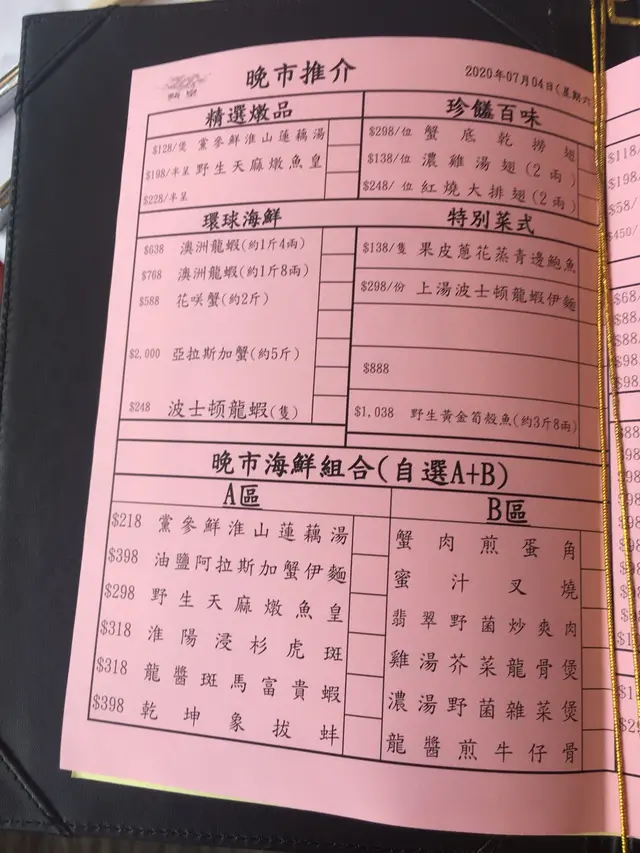 晚市推介
2020年07月04日(星期六
精選燉品
$128/隻 黨參鮮淮山蓮藕湯
$198/半呈 野生天麻燉魚皇
$228/半呈
珍饈百味
$298/位 蟹底乾撈翅
$138/位 濃雞湯翅(2兩)
$248/位 紅燒大排翅(2兩)
環球海鮮
$638 澳洲龍蝦(約1斤4兩)
$768 澳洲龍蝦(約1斤8兩)
$588 花咲蟹(約2斤)
$2,000 亞拉斯加蟹(約5斤)
$248 波士頓龍蝦(隻)
特別菜式
$138/隻 果皮蔥花蒸青邊鮑魚
$298/份 上湯波士頓龍蝦伊麵
$888
$1,038 野生黃金筍殼魚(約3斤8兩)
晚市海鮮組合(自選A+B)
A區
$218 黨參鮮淮山蓮藕湯
$398 油鹽阿拉斯加蟹伊麵
$298 野生天麻燉魚皇
$318 淮陽浸杉虎斑
$318 龍醬斑馬富貴蝦
$398 乾坤象拔蚌
B區
蟹肉煎蛋角
蜜汁叉燒
翡翠野菌炒爽肉
雞湯芥菜龍骨煲
濃湯野菌雜菜煲
龍醬煎牛仔骨
$118/
$198/
$58/
$450/